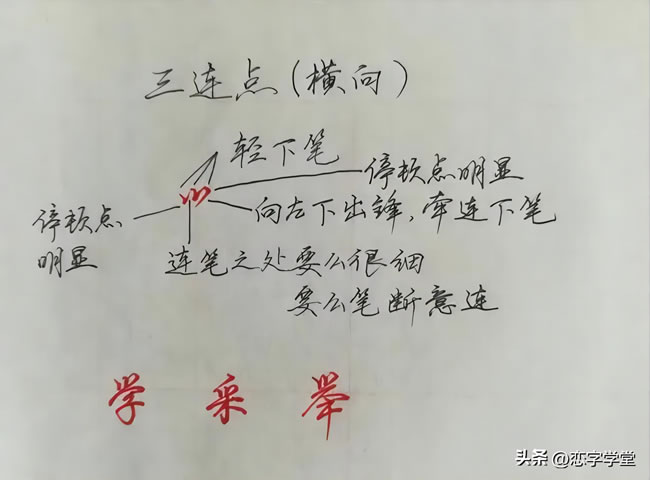 三连点(横向)
轻下笔
停顿点明显
停顿点
明显
向左下出锋,牵连下笔
连笔之处要么很细
要么笔断意连
学 采 举
头条 @恋字学堂